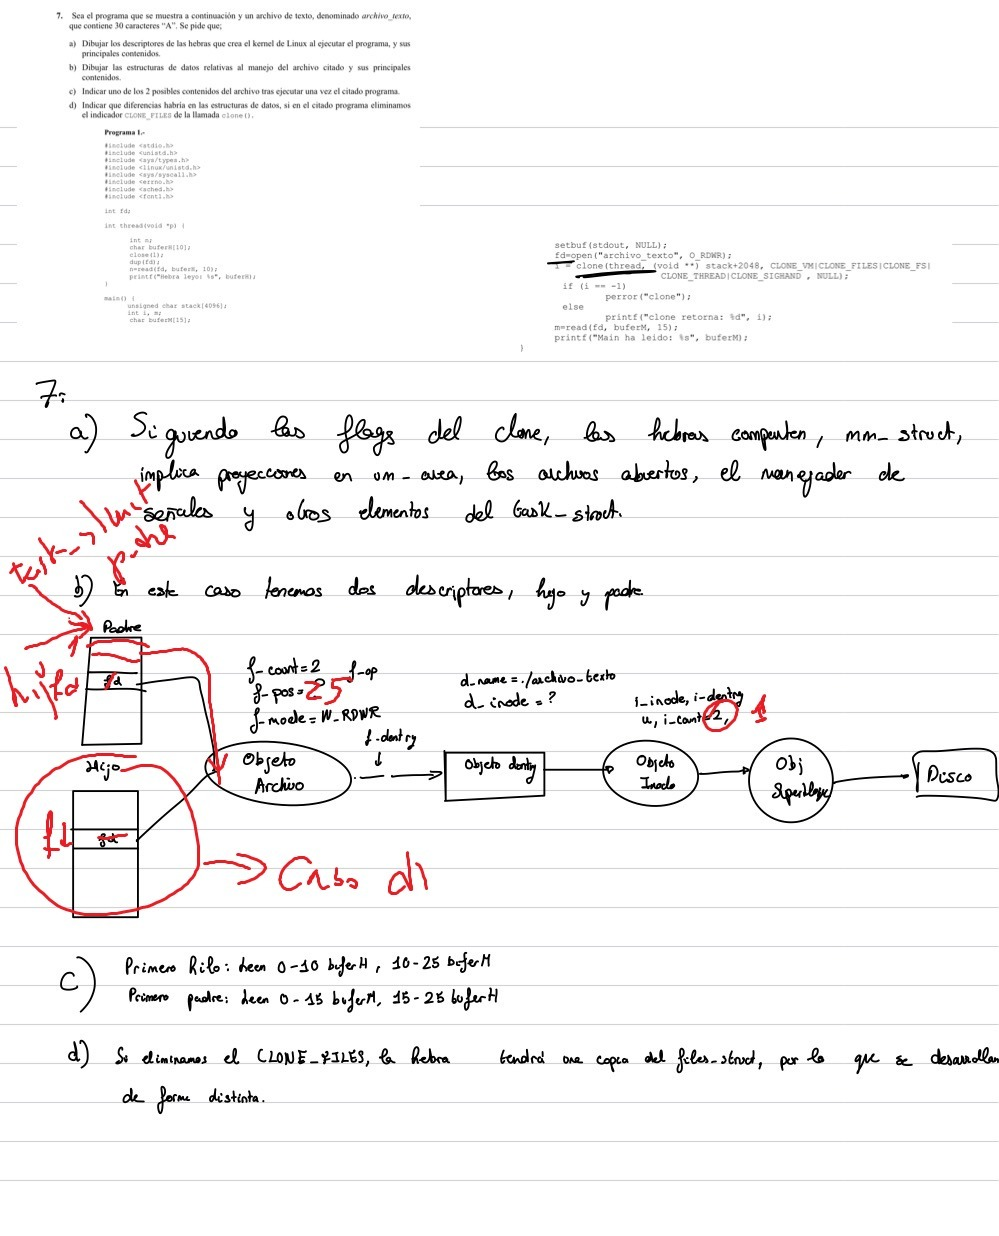 7. Sea el programa que se muestra a continuación y un archivo de texto, denominado archivo_texto,
que contiene 30 caracteres "A". Se pide que;
a) Dibujar los descriptores de las hebras que crea el kernel de Linux al ejecutar el programa, y sus
principales contenidos.
b) Dibujar las estructuras de datos relativas al manejo del archivo citado y sus principales
contenidos.
c) Indicar uno de los 2 posibles contenidos del archivo tras ejecutar una vez el citado programa.
d) Indicar que diferencias habría en las estructuras de datos, si en el citado programa eliminamos
el indicador CLONE_FILES de la llamada clone().
Programa 1.-
#include <stdio.h>
#include <unistd.h>
#include <sys/types.h>
#include <linux/unistd.h>
#include <sys/syscall.h>
#include <errno.h>
#include <sched.h>
#include <fcntl.h>
int fd;
int thread(void *p) {
int n;
char buferH[10];
close(1);
dup(fd);
n=read(fd, buferH, 10);
printf("Hebra leyo: %s", buferH);
}
main() {
unsigned char stack[4096];
int i, m;
char buferM[15];
setbuf(stdout, NULL);
fd=open("archivo_texto", O_RDWR);
i = clone(thread, (void **) stack+2048, CLONE_VM|CLONE_FILES|CLONE_FS|
CLONE_THREAD|CLONE_SIGHAND , NULL);
if (i == -1)
perror("clone");
else
printf("clone retorna: %d", i);
m=read(fd, buferM, 15);
printf("Main ha leido: %s", buferM);
}
7.
a) Siguiendo las flags del clone, las hebras comparten, mm_struct,
implica proyecciones en vm_area, los archivos abiertos, el manejador de
señales y otros elementos del task_struct.
task_struct
padre
b) En este caso tenemos dos descriptores, hijo y padre
Padre
hijo
1
fd
fd
f_count=2 f_op
f_pos= 25
f_mode= W_RDWR
f_dentry
d_name = ./archivo_texto
d_inode = ?
i_inode, i_dentry
u, i_count=2, 1
Hijo
Objeto
Archivo
Objeto dentry
Objeto
Inodo
Obj
Superbloque
Disco
fd
fd
Caso d)
c) Primero hilo: leen 0-10 buferH, 10-25 buferM
Primero padre: leen 0-15 buferM, 15-25 buferH
d) Si eliminamos el CLONE_FILES, la hebra tendrá una copia del files_struct, por lo que se desarrollan
de forma distinta.